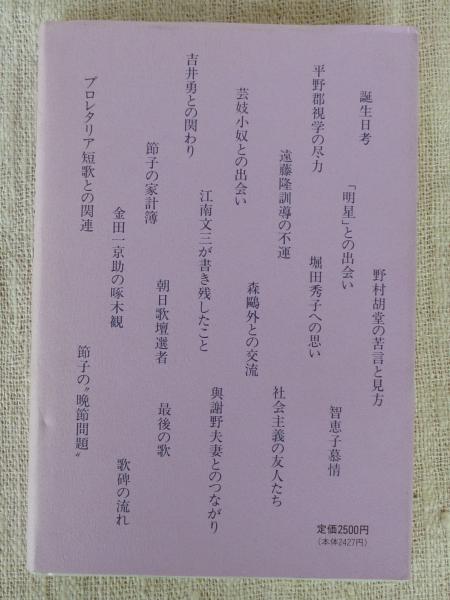 誕生日考
「明星」との出会い
野村胡堂の苦言と見方
平野郡視学の尽力
堀田秀子への思い
智恵子慕情
遠藤隆訓導の不運
芸妓小奴との出会い
森鷗外との交流
社会主義の友人たち
吉井勇との関わり
江南文三が書き残したこと
與謝野夫妻とのつながり
節子の家計簿
朝日歌壇選者
最後の歌
プロレタリア短歌との関連
金田一京助の啄木観
節子の〝晩節問題〟
歌碑の流れ
定価2500円
(本体2427円)